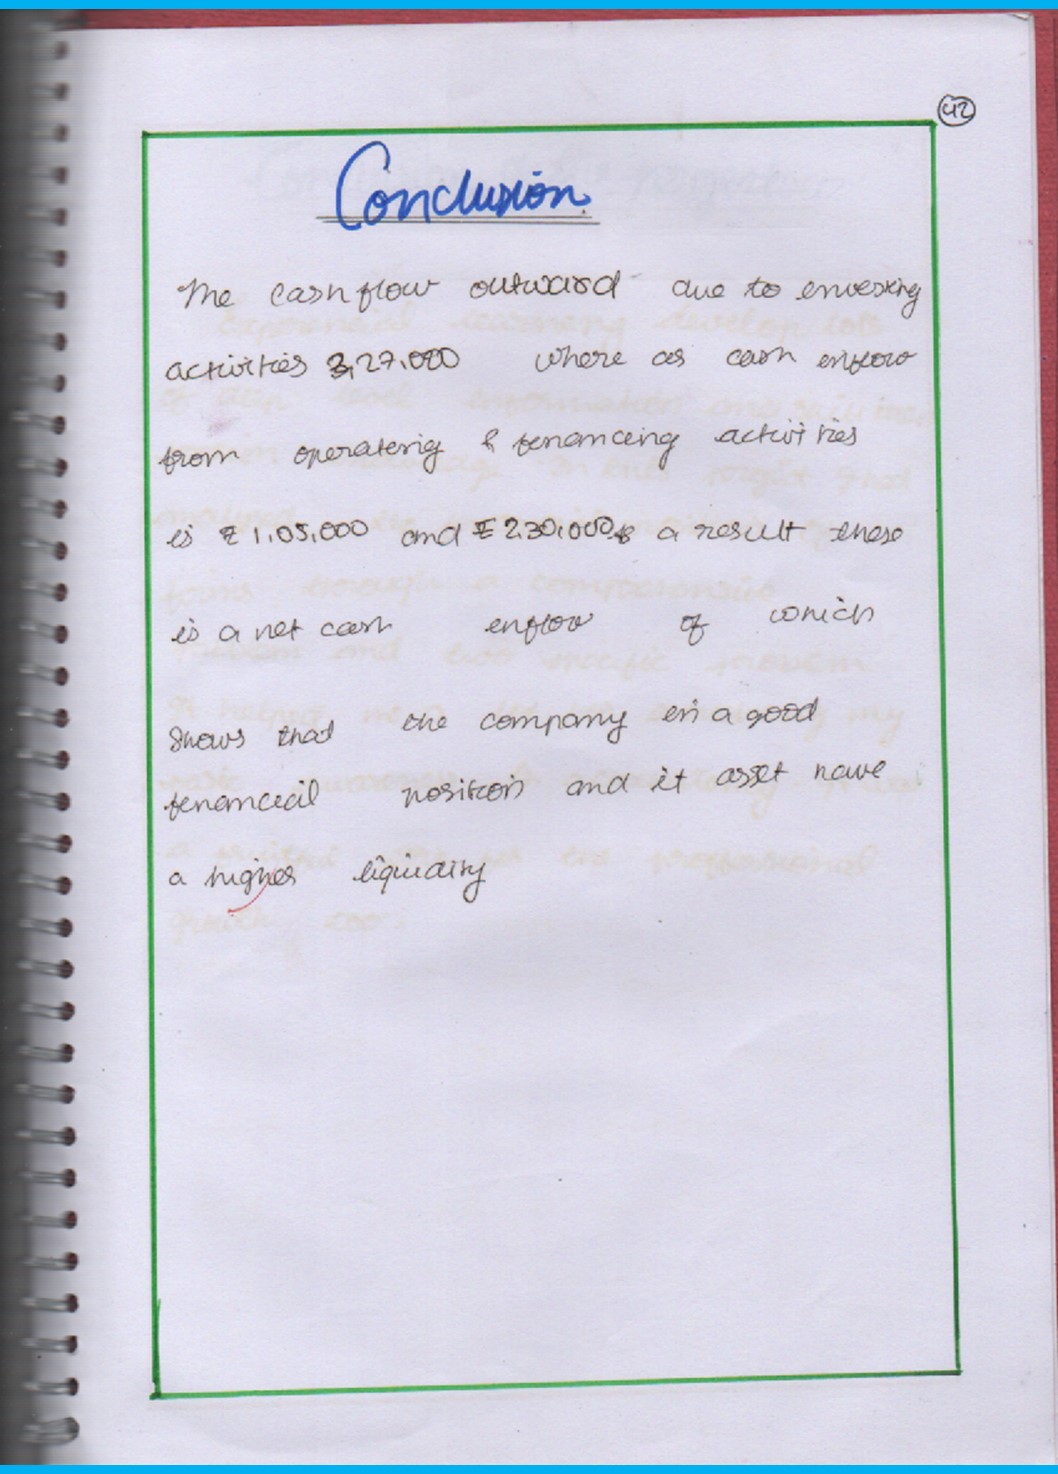 42
Conclusion
The cashflow outward due to envesting
activities 3,27,000 where as cash enflow
from operateng & fenancing activities
is ₹ 1,05,000 and ₹ 2,30,000 a result these
is a net cash enflow of which
shows that the company en a good
fenanceal position and it asset have
a higher liquidity